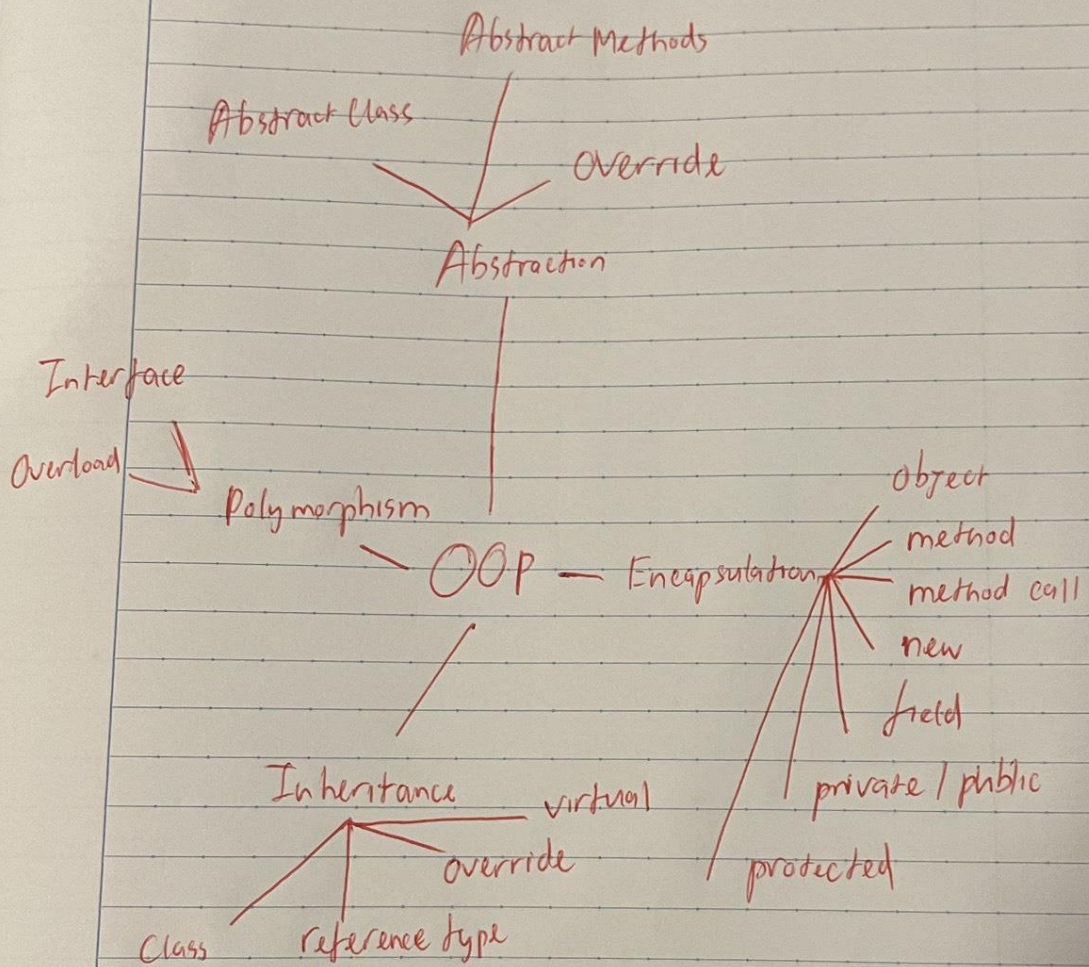 Abstract Methods
Abstract Class
Override
Abstraction
Interface
Overload
Polymorphism
OOP
Encapsulation
object
method
method call
new
field
private / public
protected
Inheritance
virtual
override
reference type
Class